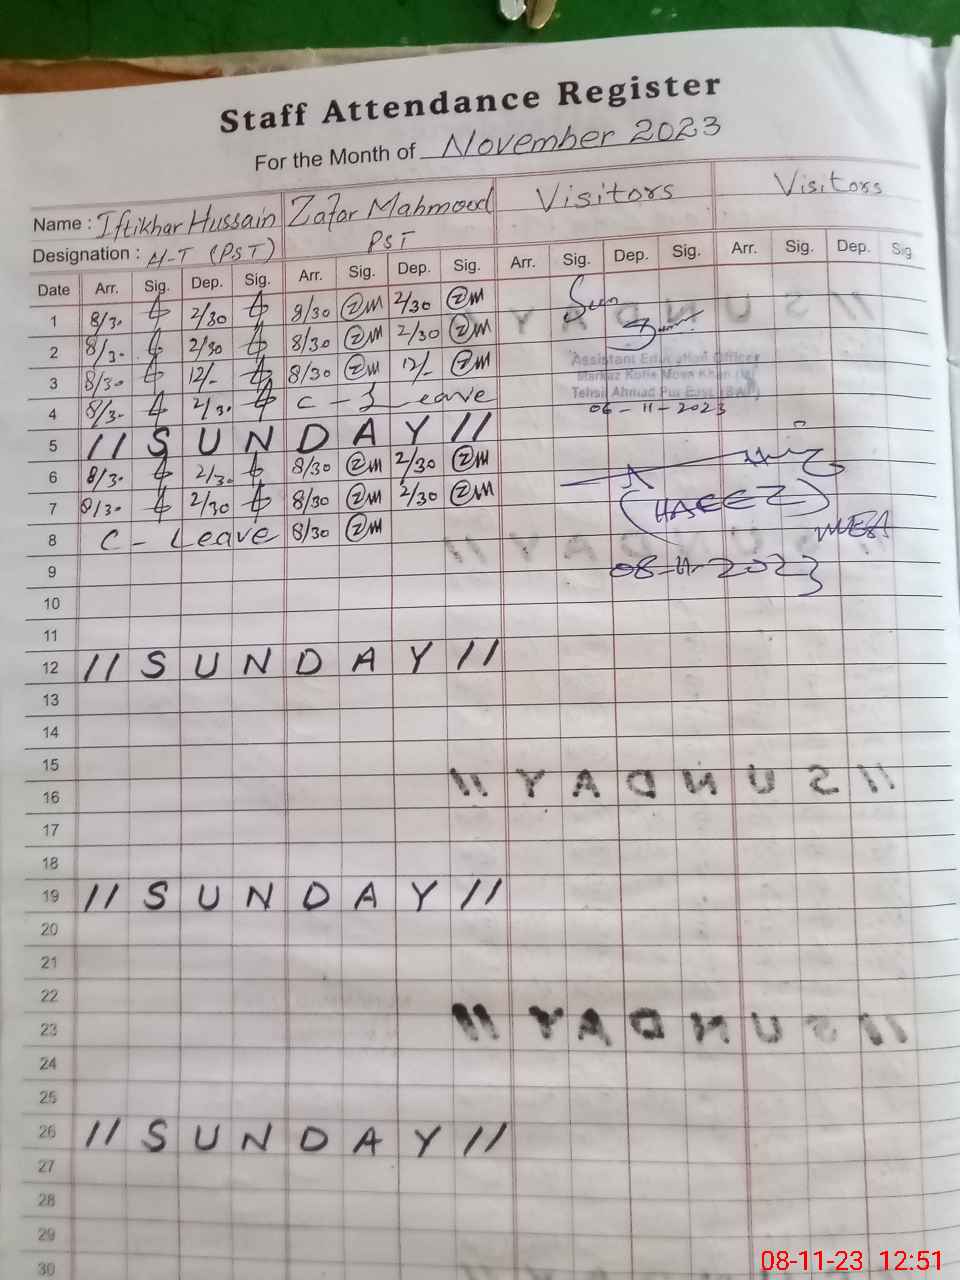 Staff Attendance Register
For the Month of November 2023
Name : Iftikhar Hussain Zafar Mahmood Visitors Visitors
Designation : H-T (PST) PST
Date Arr. Sig. Dep. Sig. Arr. Sig. Dep. Sig. Arr. Sig. Dep. Sig. Arr. Sig. Dep. Sig.
1 8/30 2/30 8/30 ZM 2/30 ZM Seen
2 8/30 2/30 8/30 ZM 2/30 ZM
3 8/30 12/- 8/30 ZM 12/- ZM Assistant Education Officer
Tehsil Ahmad Pur East (BWP)
4 8/30 2/30 C - Leave 06-11-2023
5 // S U N D A Y //
6 8/30 2/30 8/30 ZM 2/30 ZM
7 8/30 2/30 8/30 ZM 2/30 ZM (HAFEEZ)
8 C - Leave 8/30 ZM MEA
9 08-11-2023
10
11
12 // S U N D A Y //
13
14
15
16
17
18
19 // S U N D A Y //
20
21
22
23
24
25
26 // S U N D A Y //
27
28
29
30
08-11-23 12:51